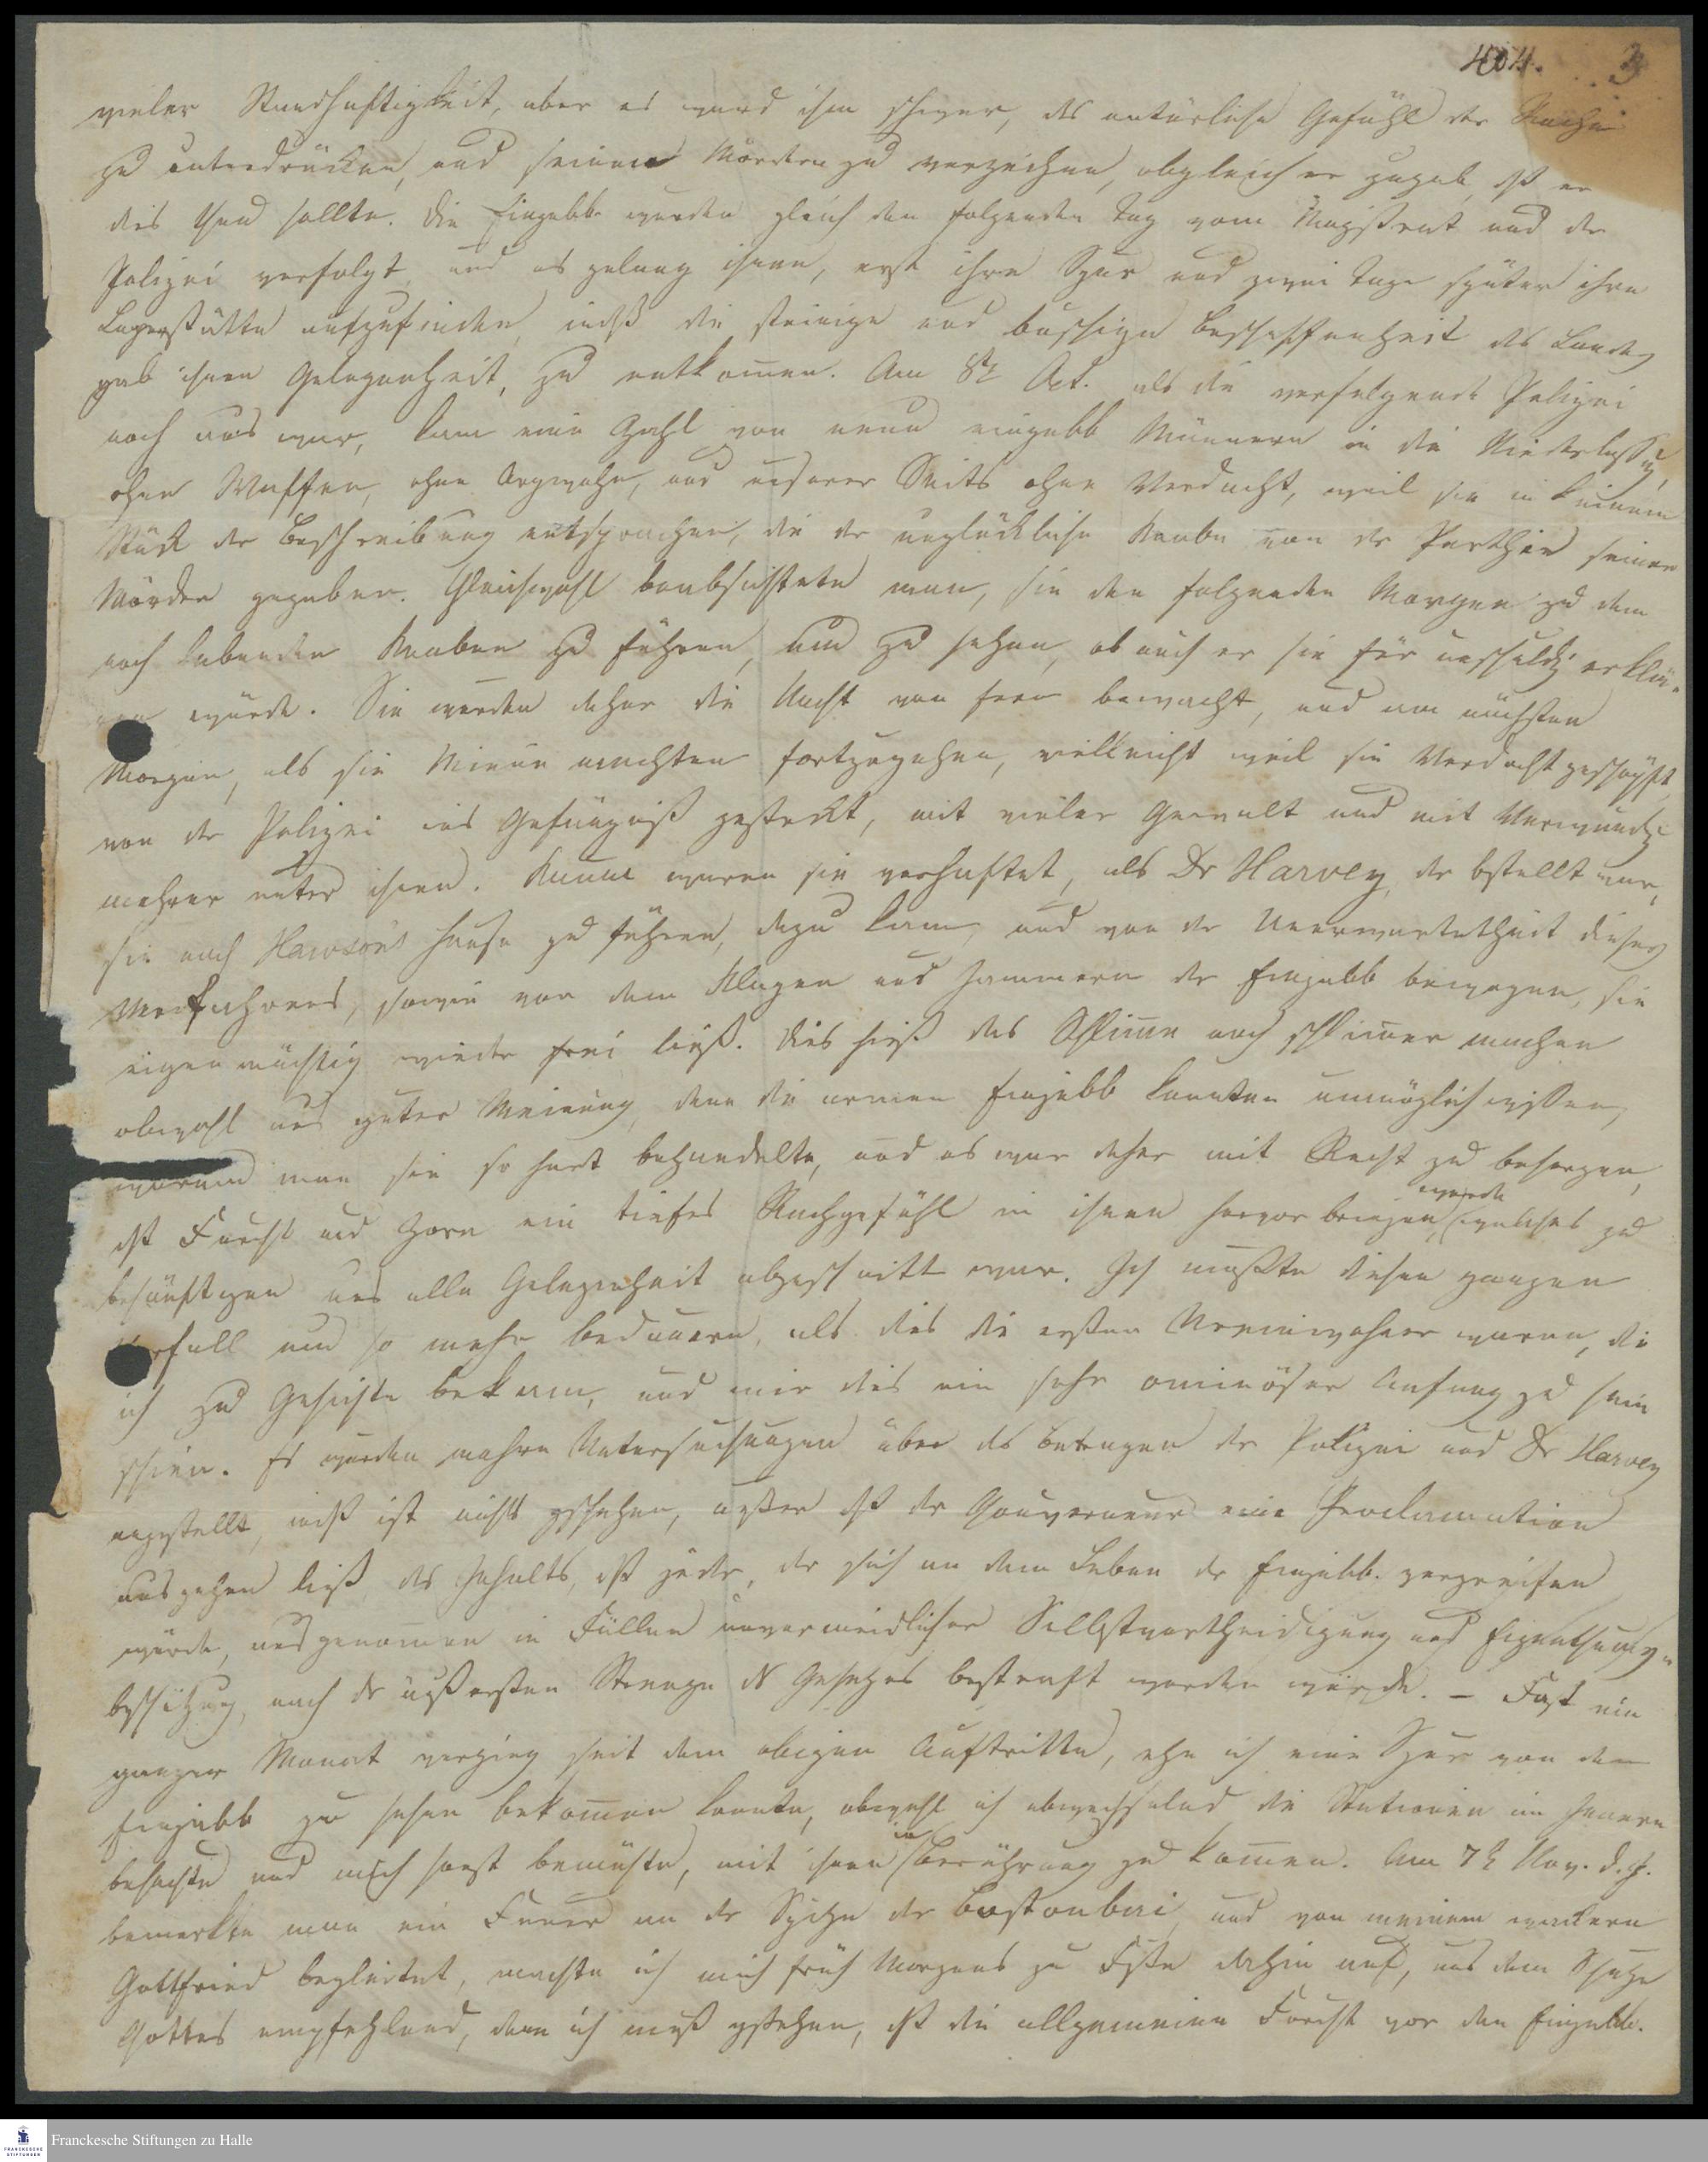 404. 3
vieler Standhaftigkeit, aber es ward ihm schwer, das natürliche Gefühl der Rache
zu unterdrücken, und seinen Mördern zu verzeihen, obgleich er zugab, dß er
dies thun sollte. Die Eingebb. wurden gleich den folgenden Tag vom Magistrat und der
Polizei verfolgt und es gelang ihnen, erst ihre Spur und zwei Tage später ihre
Lagerstätte aufzufinden, indß die steinige und buschige Beschaffenheit des Landes
gab ihnen Gelegenheit, zu entkom̄en. Am 8t Oct. als die verfolgende Polizei
noch aus war, kam eine Zahl von neun eingebb Männern in die Niederlassg,
ohne Waffen, ohne Argwohn, und unserer Seits ohne Verdacht, weil sie in keinem
Stück der Beschreibung entsprachen, die der unglückliche Knabe von der Parthie seiner
Mörder gegeben. Gleichwohl beabsichtete man, sie den folgenden Morgen zu dem
noch lebenden Knaben zu führen, um zu sehen, ob auch er sie für unschuldig erklä-
ren würde. Sie wurden daher die Nacht von fern bewacht, und am nächsten
Morgen, als sie Miene machten fortzugehen, vielleicht weil sie Verdacht geschöpft,
von der Polizei ins Gefängniß gesteckt, mit vieler Gewalt und mit Verwundg
mehrer unter ihnen. Kaum waren sie verhaftet, als Dr Harvey, der bstellt war,
sie nach Hawson's Hause zu führen, dazu kam, und von der Unerwartetheit dieses
Verfahrens, sowie von dem Klagen und Jammern der Eingebb bewogen, sie
eigenmächtig wieder frei ließ. Dies hieß das Schlim̄e noch schlim̄er machen
obwohl aus guter Meinung, denn die armen Eingebb konnten unmöglich wissen,
warum man sie so hart behandelte, und es war daher mit Recht zu besorgen,
dß Furcht und Zorn ein tiefes Rachgefühl in ihnen hervor bringen würde, welches zu
besänftigen uns alle Gelegenheit abgeschnitt war. Ich mußte diesen ganzen
Vorfall um so mehr bedauern, als dies die ersten Ureinwohner waren, die
ich zu Gesichte bekam, und mir dies ein sehr ominöser Anfang zu sein
schien. Es wurden mehre Untersuchungen über das Betragen der Polizei und Dr Harvey
angestellt, indß ist nichts gschehen, außer dß der Gouverneur eine Proclamation
ausgehen ließ, des Inhalts, dß jeder, der sich an dem Leben der Eingebb. vergreifen
würde, ausgenom̄en in Fällen unvermeidlicher Selbstvertheidigung und Eigenthums-
bschützung, nach der äußersten Strenge ds Gesetzes bestraft werden würde. – Fast ein
ganzer Monat verging seit dem obigen Auftritte, ehe ich eine Spur von den
Eingebb zu sehen bekom̄en konnte, obwohl ich abwechselnd die Stationen im Innern
besuchte und mich sonst bemühte, mit ihnen in Berührung zu kom̄en. Am 7t Nov. d. J.
bemerkte man ein Feuer an der Spitze der Bostonbai und von meinem wackern
Gottfried begleitet, machte ich mich früh Morgens zu Fße dahin auf, uns dem Schutze
Gottes empfehlend, denn ich muß gstehen, dß die allgemeine Furcht vor den Eingebb.
Franckesche Stiftungen zu Halle
FRANCKESCHE STIFTUNGEN